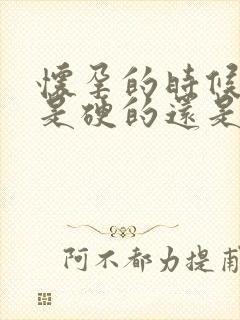 懷孕的時候
是硬的還是
阿不都力提甫